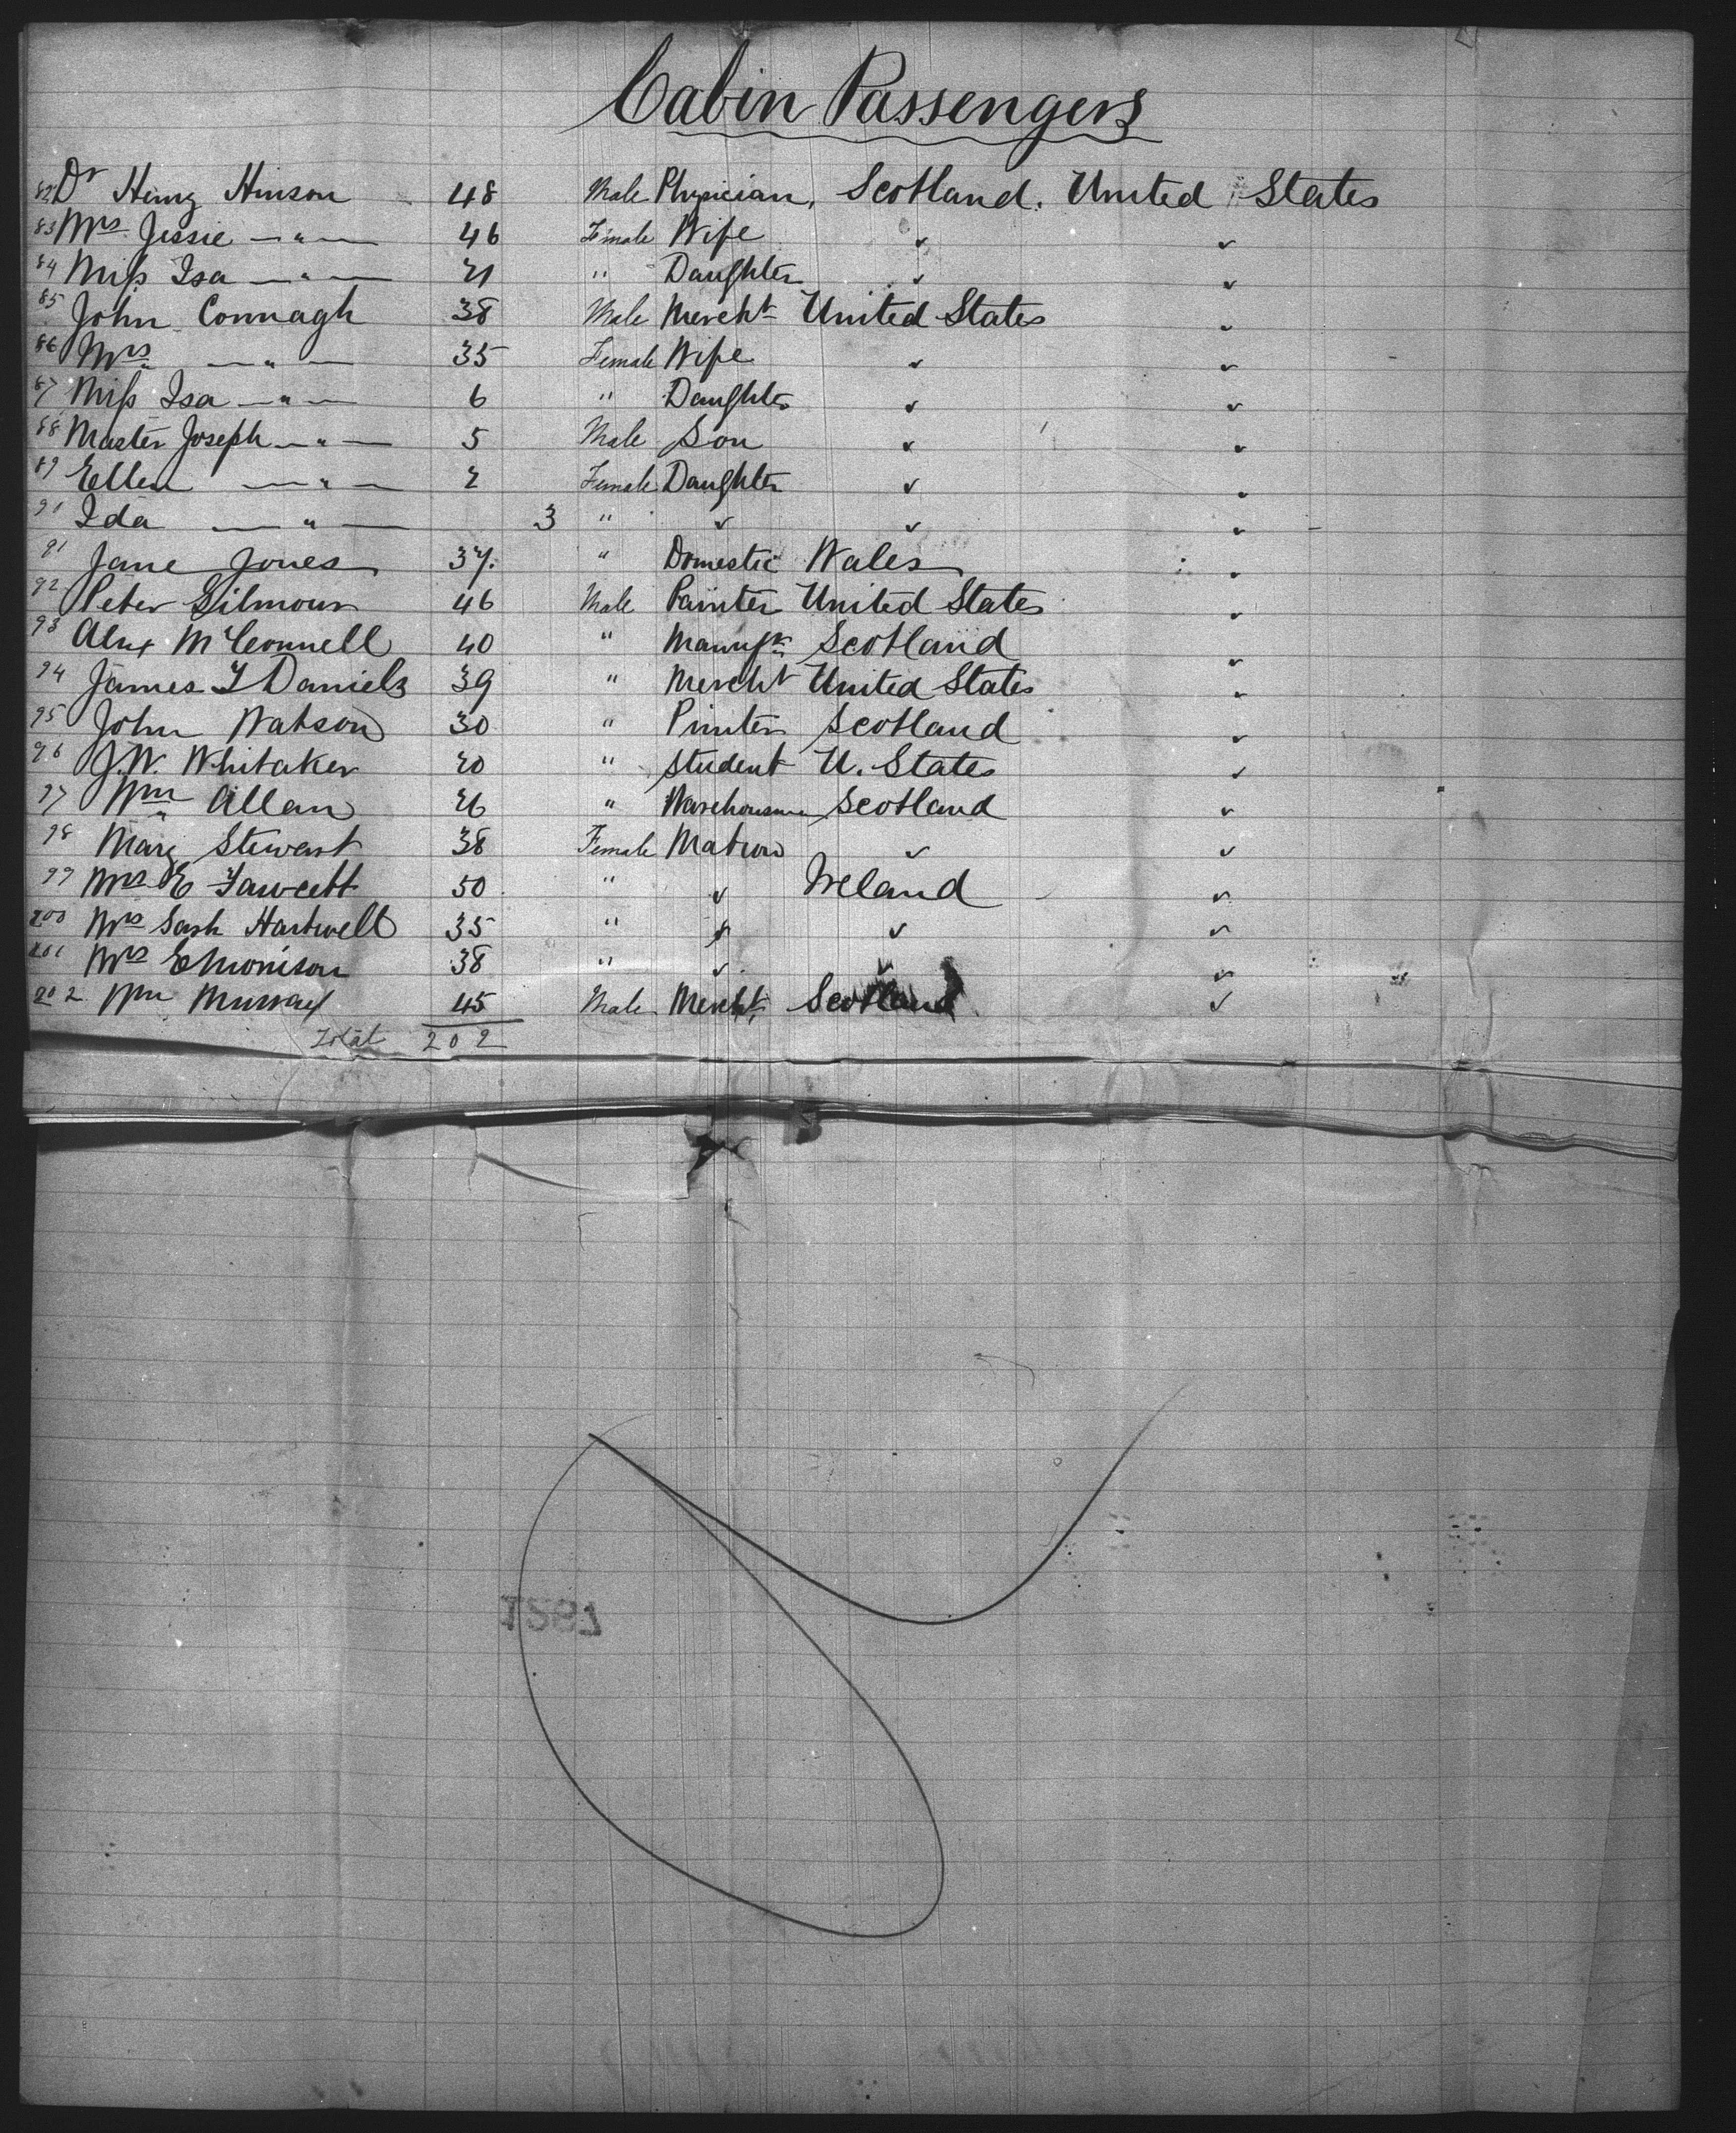 Cabin Passengers
82 Dr Henry Hinson 48 Male Physician, Scotland. United States
83 Mrs Jessie — " — 46 Female Wife ✓ ✓
84 Miss Isa — " — 21 " Daughter ✓ ✓
85 John Connagh 38 Male Mercht United States ✓
86 Mrs — " — 35 Female Wife ✓ ✓
87 Miss Isa — " — 6 " Daughter ✓ ✓
88 Master Joseph — " — 5 Male Son ✓ ✓
89 Ellen — " — 2 Female Daughter ✓ ✓
90 Ida — " — 3 " ✓ ✓ ✓
91 Jane Jones 37. " Domestic Wales ✓
92 Peter Gilmour 46 Male Painter United States ✓
93 Alex McConnell 40 " Manufr Scotland ✓
94 James F Daniels 39 " Mercht United States ✓
95 John Watson 30 " Printer Scotland ✓
96 J.W. Whitaker 20 " Student U. States ✓
97 Wm Allan 26 " Warehouseman Scotland ✓
98 Mary Stewart 38 Female Matron ✓ ✓
99 Mrs E Fawcett 50 " ✓ Ireland ✓
200 Mrs Sarh Hartwell 35 " ✓ ✓ ✓
201 Mrs E Morrison 38 " ✓ ✓ ✓
202 Wm Murray 45 Male Mercht Scotland ✓
Total 202